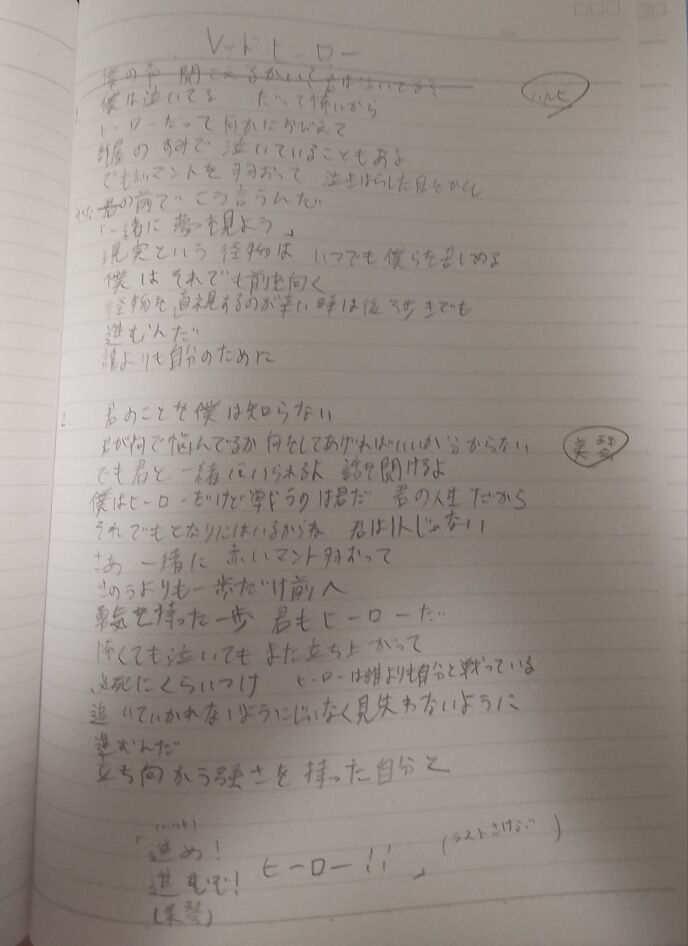 レッドヒーロー
僕の声 聞こえるかい? 君は泣いてるを
僕は泣いてる だって怖いから
ハルヒ
1.
ヒーローだって何かにおびえて
部屋のすみで泣いていることもある
でもマントを羽おって 泣きはらした目をかくし
みんな 君の前でこう言うんだ
「一緒に夢を見よう」
現実という怪物は いつでも僕らを苦しめる
僕はそれでも前を向く
怪物を直視するのが辛い時は後ろ歩きでも
進むんだ
誰よりも自分のために
2. 君のことを僕は知らない
君が何で悩んでるか何をしてあげればいいか分からない
美琴
でも君と一緒にいられるよ 話を聞けるよ
僕はヒーローだけど戦うのは君だ 君の人生だから
それでもとなりにはいるからね 君は1人じゃない
さあ 一緒に 赤いマント羽おって
きのうよりも一歩だけ前へ
勇気を持った一歩 君もヒーローだ
怖くても泣いてもまた立ち上がって
必死にくらいつけ ヒーローは誰よりも自分と戦っている
追いていかれないように 見失わないように
進むんだ
立ち向かう強さを持った自分と
(ハルヒ)
「進め!
進むぞ! ヒーロー!!」 (ラストさけぶ)
(美琴)